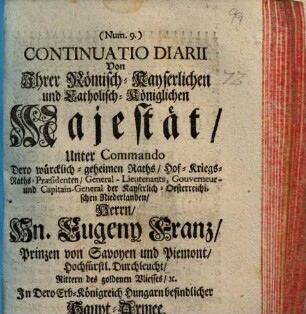 (Num. 9.)
CONTINUATIO DIARII
Von
Ihrer Römisch-Kayserlichen
und Catholisch-Königlichen
Majestät/
Unter Commando
Dero würcklich-geheimen Raths/ Hof-Kriegs-
Raths-Præsidenten/ General-Lieutenants, Gouverneur-
und Capitain-General der Kayserlich-Oesterreichi-
schen Niederlanden/
Herrn/
Hn. Eugeny Franz/
Prinzen von Savoyen und Piemont/
Hochfürstl. Durchleucht/
Rittern des goldenen Vliesses/ ꝛc.
In Dero Erb-Königreich Hungarn befindlicher
Haupt-Armee.